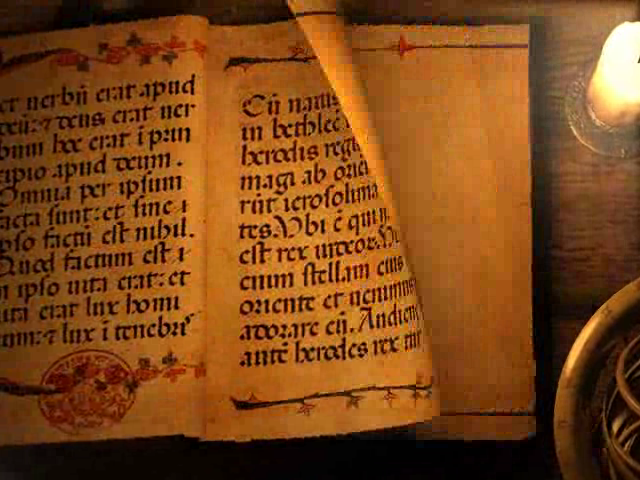 et verbū erat apud
deū: ⁊ deus erat ver
bum hoc erat ī prin
cipio apud deum.
Omnia per ipsum
facta sunt: et sine i
pso factū est nihil.
Quod factum est i
n ipso vita erat: et
vita erat lux homi
num: ⁊ lux ī tenebris
Cū natus
in bethleē
herodis regi
magi ab orien
rūt ierosolima
tes. Vbi ē qui n
est rex iudeor
enim stellam eius
oriente et venimus
adorare eū. Audiens
autē herodes rex tur